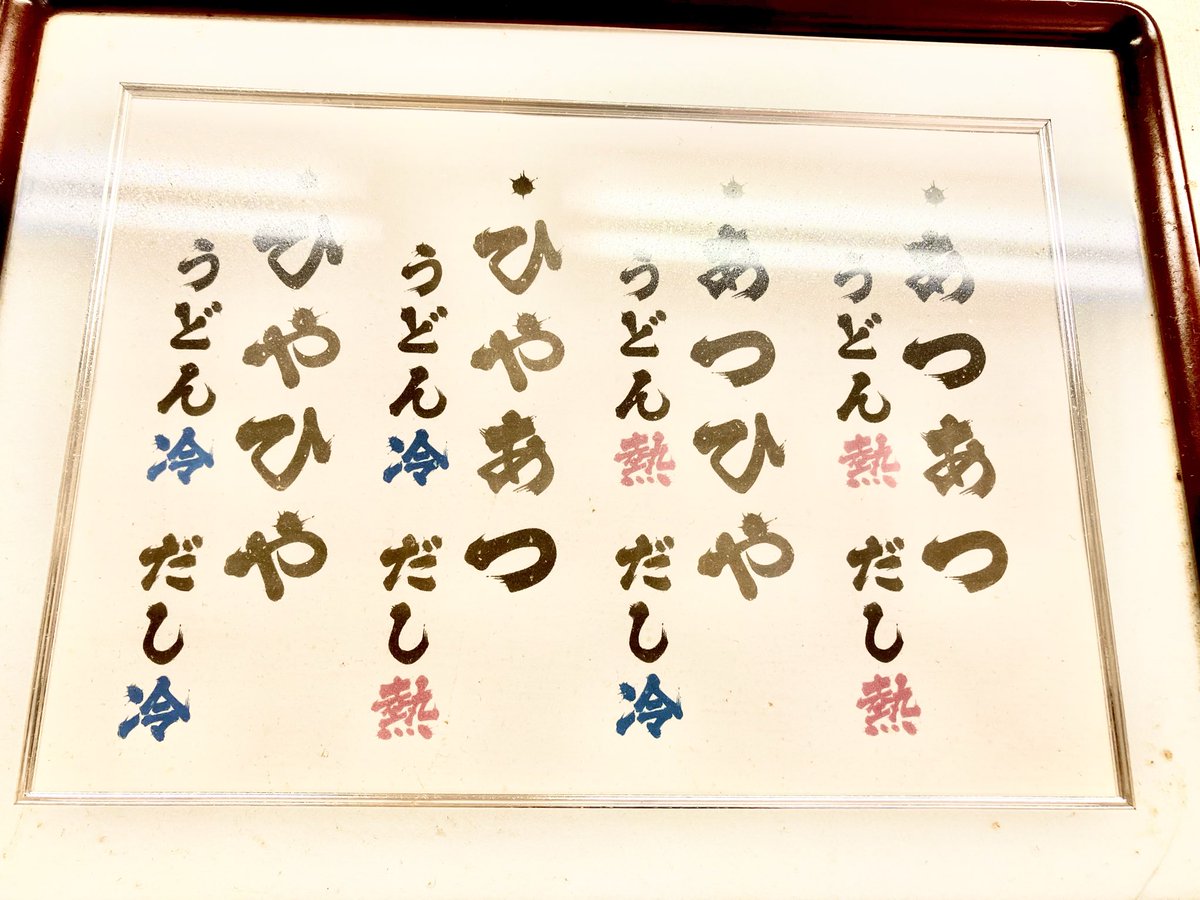 ・あつあつ
うどん熱 だし熱
・あつひや
うどん熱 だし冷
・ひやあつ
うどん冷 だし熱
・ひやひや
うどん冷 だし冷